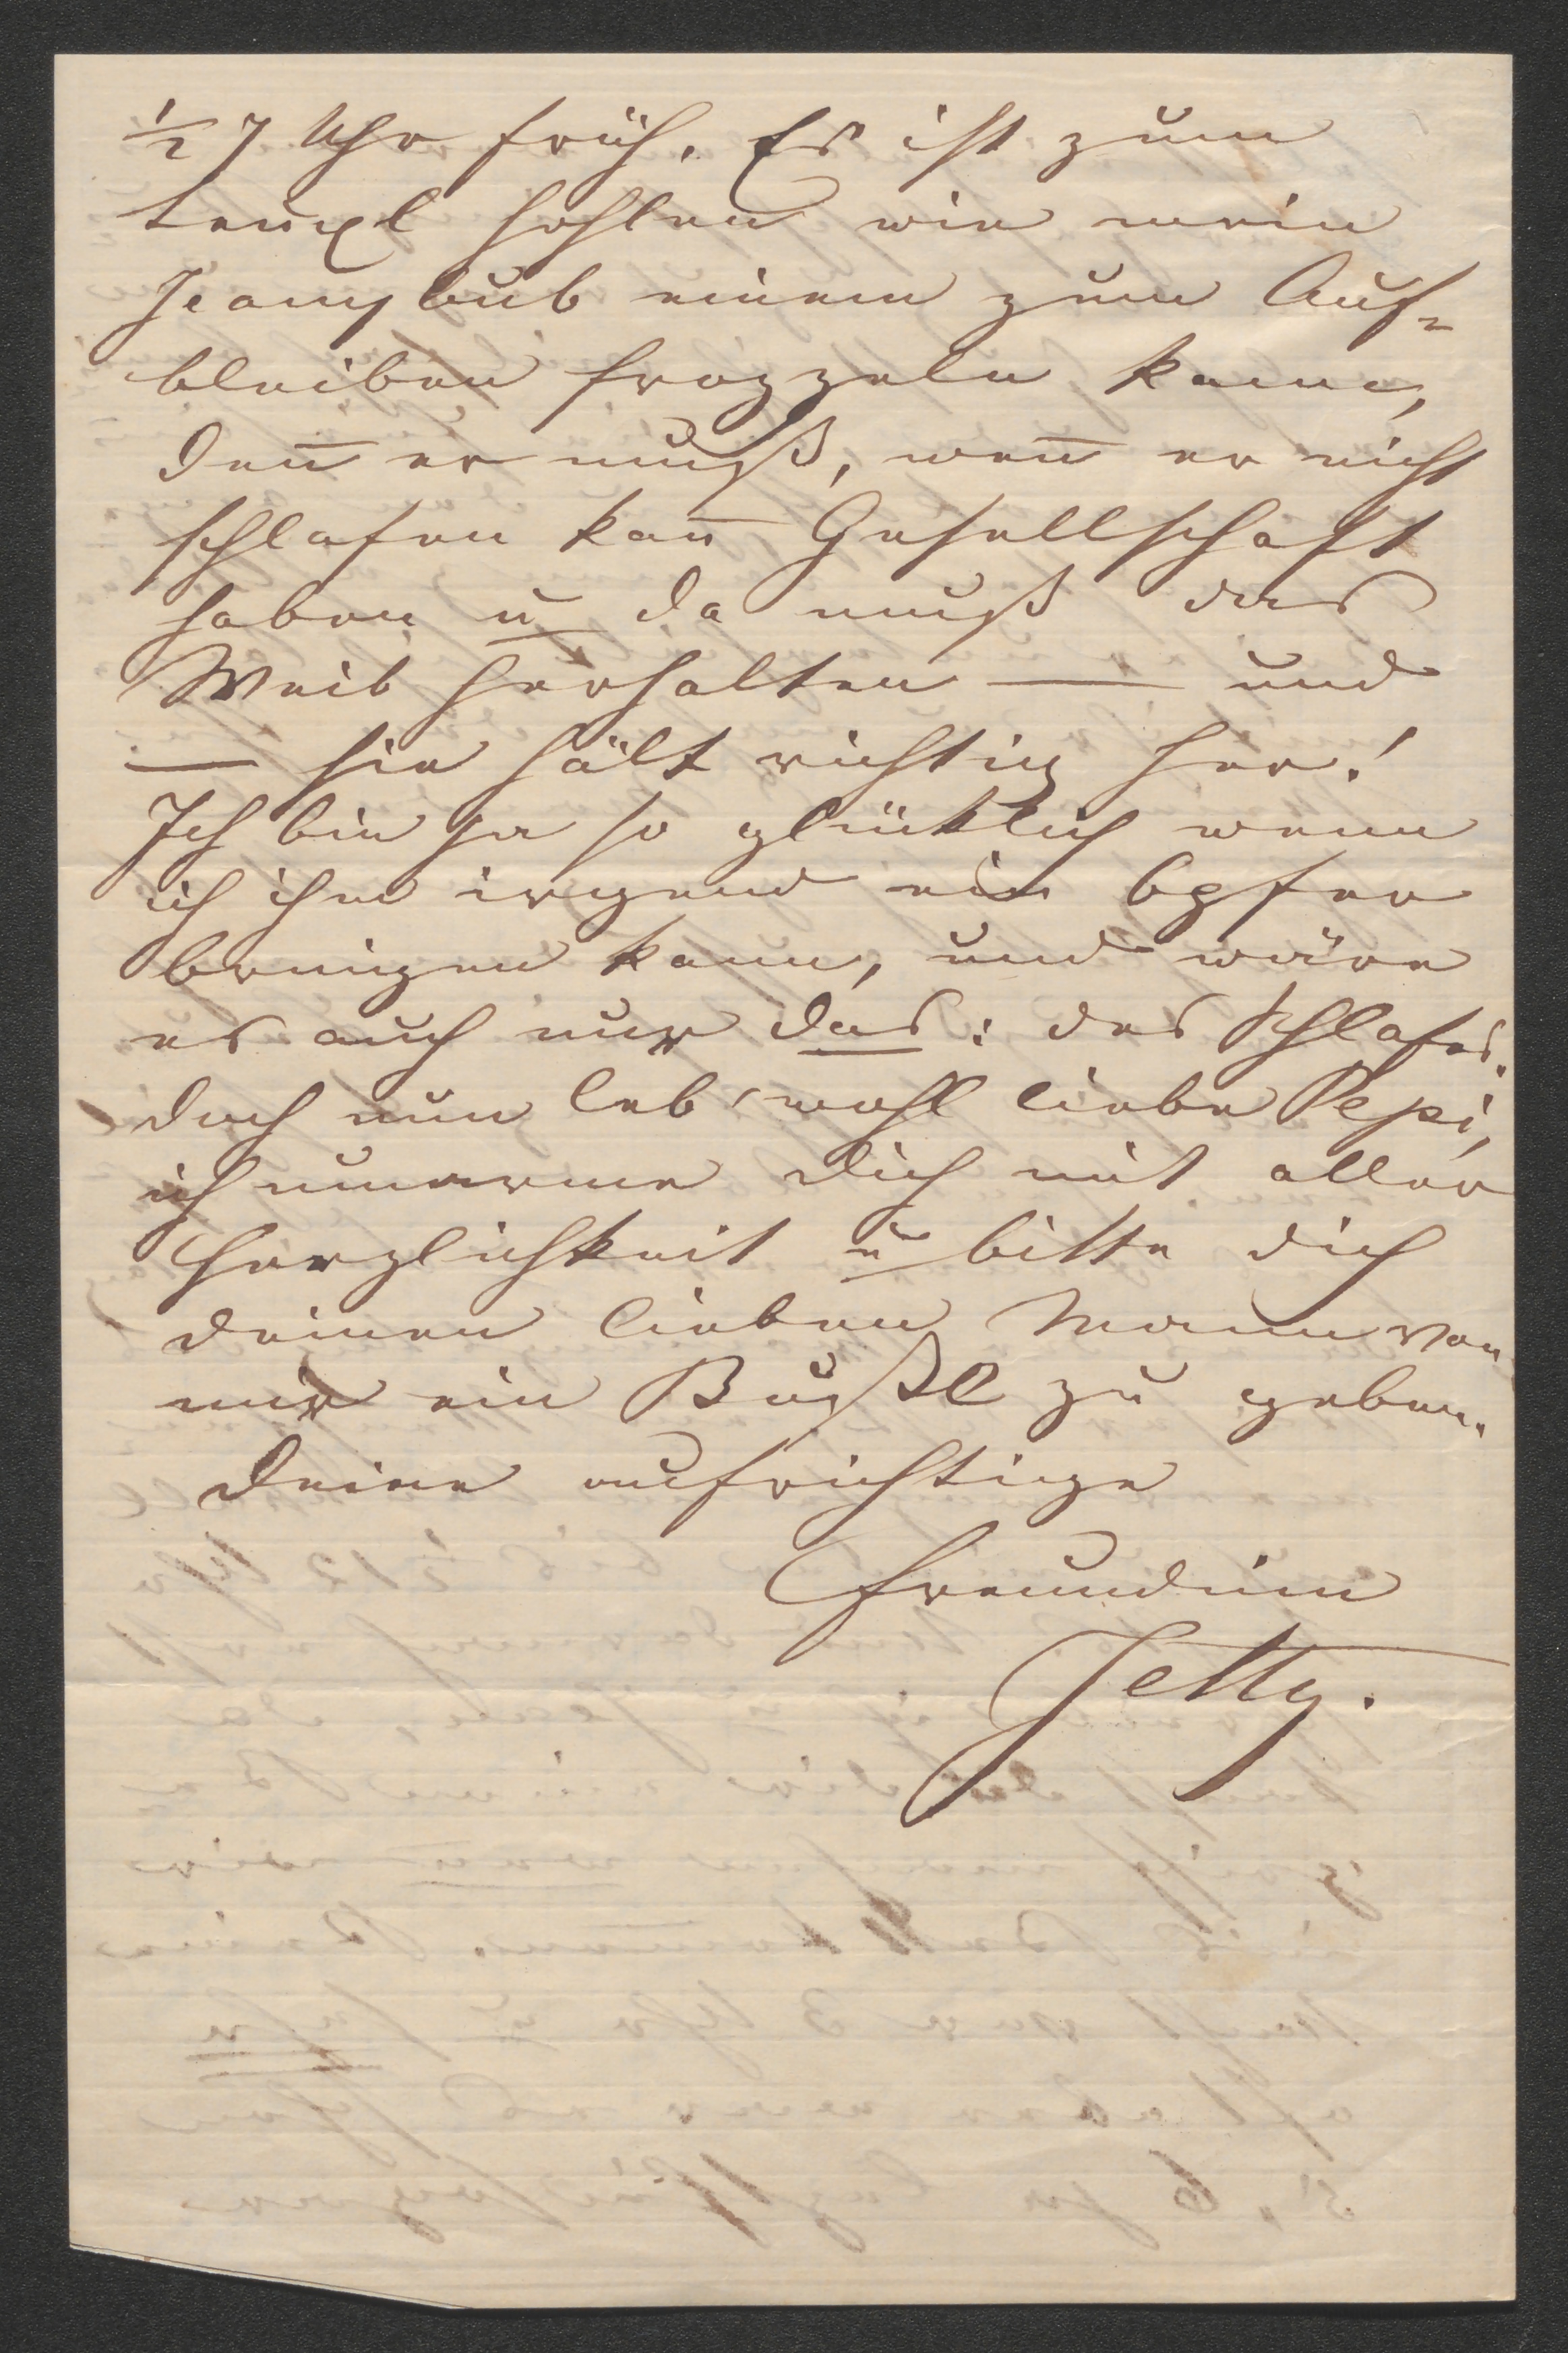 ½ 7 Uhr früh. Es ist zum
teuxl hohlen wie mein
Jeanybub einem zum Auf=
bleiben frozzeln kann,
den̅ er muß, wen̅ er nicht
schlafen kan̅ Gesellschaft
haben u da muß das
Weib herhalten — und
— sie hält richtig her!
Ich bin ja so glücklich wenn
ich ihm irgend ein Opfer
bringen kann, und wäre
es auch nur das: des Schlafes.
doch nun leb' wohl liebe Pepi,
ich umarme dich mit aller
Herzlichkeit u bitte dich
deinen lieben Mann von
mir ein Bußl zu geben.
Deine aufrichtige
Freundinn
Jetty.